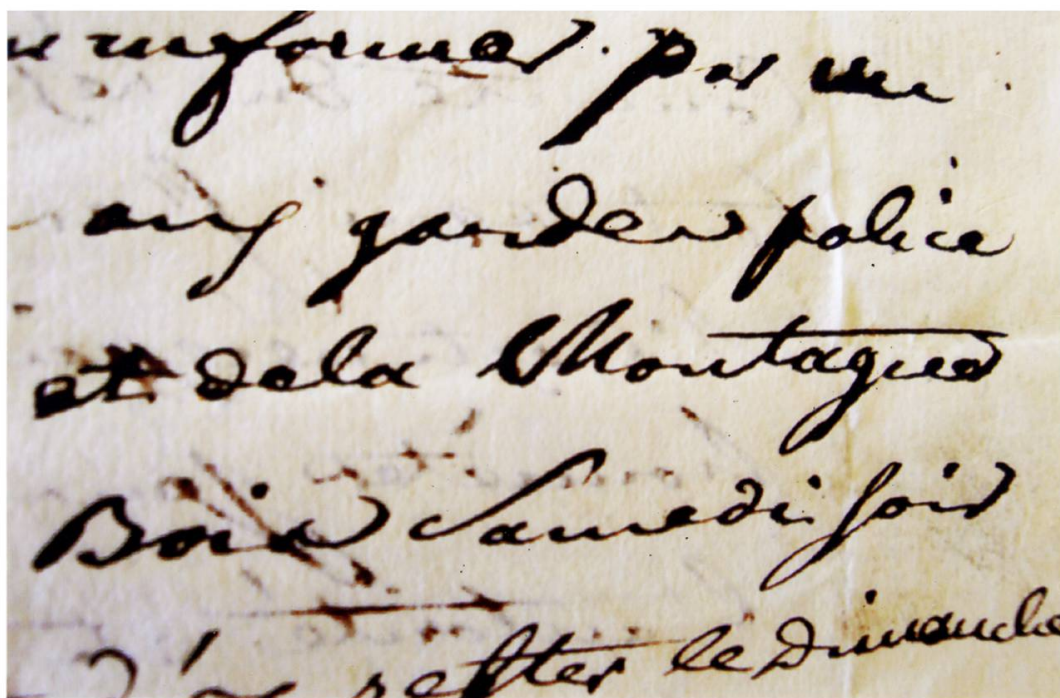 informer par une
aux gardes police
et dela Montagne
Bois Samedi soir
d'y rester le Dimanche